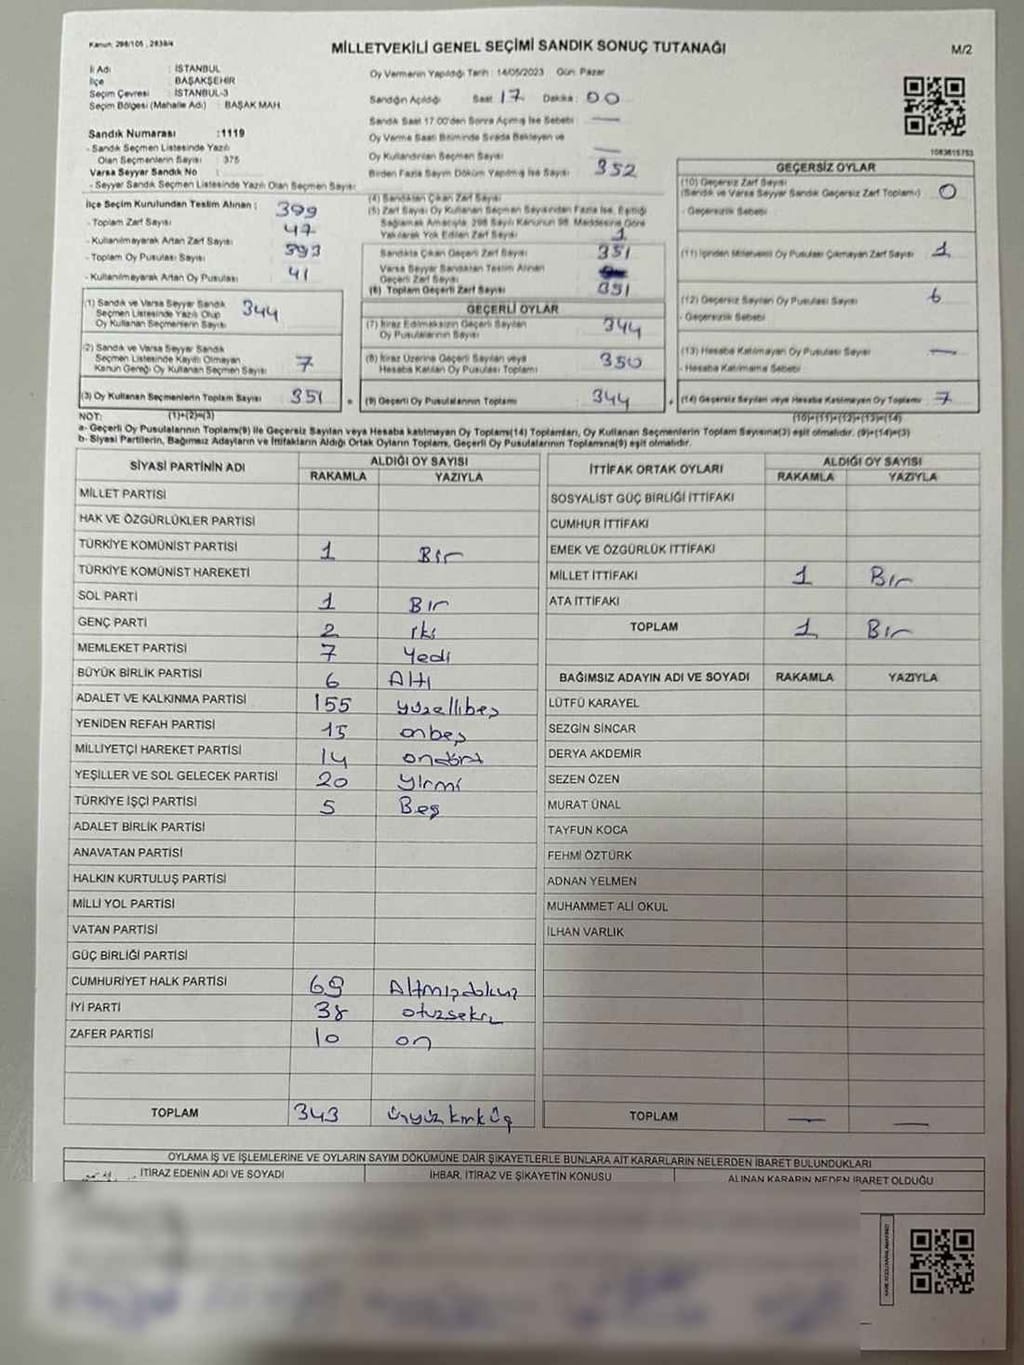 Kanun: 298/105 , 2839/4
MİLLETVEKİLİ GENEL SEÇİMİ SANDIK SONUÇ TUTANAĞI
M/2
İl Adı : İSTANBUL
İlçe : BAŞAKŞEHİR
Seçim Çevresi : İSTANBUL-3
Seçim Bölgesi (Mahalle Adı) : BAŞAK MAH.
Oy Vermenin Yapıldığı Tarih : 14/05/2023 Gün: Pazar
Sandığın Açıldığı Saat : 17 Dakika : 00
Sandık Saat 17.00'den Sonra Açılmış İse Sebebi : —
Oy Verme Saati Bitiminde Sırada Bekleyen ve
Oy Kullandırılan Seçmen Sayısı —
Birden Fazla Sayım Döküm Yapılmış İse Sayısı :
Sandık Numarası :1119
- Sandık Seçmen Listesinde Yazılı
Olan Seçmenlerin Sayısı : 375
Varsa Seyyar Sandık No :
- Seyyar Sandık Seçmen Listesinde Yazılı Olan Seçmen Sayısı:
İlçe Seçim Kurulundan Teslim Alınan :
- Toplam Zarf Sayısı 399
- Kullanılmayarak Artan Zarf Sayısı 47
- Toplam Oy Pusulası Sayısı 393
- Kullanılmayarak Artan Oy Pusulası 41
(1) Sandık ve Varsa Seyyar Sandık
Seçmen Listesinde Yazılı Olup
Oy Kullanan Seçmenlerin Sayısı 344
(2) Sandık ve Varsa Seyyar Sandık
Seçmen Listesinde Kayıtlı Olmayan
Kanun Gereği Oy Kullanan Seçmen Sayısı 7
(3) Oy Kullanan Seçmenlerin Toplam Sayısı 351
(1)+(2)=(3)
(4) Sandıktan Çıkan Zarf Sayısı 352
(5) Zarf Sayısı Oy Kullanan Seçmen Sayısından Fazla İse, Eşitliği
Sağlamak Amacıyla, 298 Sayılı Kanunun 98. Maddesine Göre
Yakılarak Yok Edilen Zarf Sayısı 1
Sandıkta Çıkan Geçerli Zarf Sayısı 351
Varsa Seyyar Sandıktan Teslim Alınan
Geçerli Zarf Sayısı
(6) Toplam Geçerli Zarf Sayısı 351
GEÇERLİ OYLAR
(7) İtiraz Edilmeksizin Geçerli Sayılan
Oy Pusulalarının Sayısı 344
(8) İtiraz Üzerine Geçerli Sayılan veya
Hesaba Katılan Oy Pusulası Toplamı 350
= (9) Geçerli Oy Pusulalarının Toplamı 344
1083615753
GEÇERSİZ OYLAR
(10) Geçersiz Zarf Sayısı
(Sandık ve Varsa Seyyar Sandık Geçersiz Zarf Toplamı) 0
- Geçersizlik Sebebi
(11) İçinden Milletvekili Oy Pusulası Çıkmayan Zarf Sayısı 1
(12) Geçersiz Sayılan Oy Pusulası Sayısı 6
- Geçersizlik Sebebi
(13) Hesaba Katılmayan Oy Pusulası Sayısı —
- Hesaba Katılmama Sebebi
+ (14) Geçersiz Sayılan veya Hesaba Katılmayan Oy Toplamı 7
(10)+(11)+(12)+(13)=(14)
NOT:
a- Geçerli Oy Pusulalarının Toplamı(9) ile Geçersiz Sayılan veya Hesaba katılmayan Oy Toplamı(14) Toplamları, Oy Kullanan Seçmenlerin Toplam Sayısına(3) eşit olmalıdır. (9)+(14)=(3)
b- Siyasi Partilerin, Bağımsız Adayların ve İttifakların Aldığı Ortak Oyların Toplamı, Geçerli Oy Pusulalarının Toplamına(9) eşit olmalıdır.
SİYASİ PARTİNİN ADI ALDIĞI OY SAYISI
RAKAMLA YAZIYLA
MİLLET PARTİSİ
HAK VE ÖZGÜRLÜKLER PARTİSİ
TÜRKİYE KOMÜNİST PARTİSİ 1 Bir
TÜRKİYE KOMÜNİST HAREKETİ
SOL PARTİ 1 Bir
GENÇ PARTİ 2 iki
MEMLEKET PARTİSİ 7 Yedi
BÜYÜK BİRLİK PARTİSİ 6 Altı
ADALET VE KALKINMA PARTİSİ 155 yüzellibeş
YENİDEN REFAH PARTİSİ 15 onbeş
MİLLİYETÇİ HAREKET PARTİSİ 14 ondört
YEŞİLLER VE SOL GELECEK PARTİSİ 20 yirmi
TÜRKİYE İŞÇİ PARTİSİ 5 Beş
ADALET BİRLİK PARTİSİ
ANAVATAN PARTİSİ
HALKIN KURTULUŞ PARTİSİ
MİLLİ YOL PARTİSİ
VATAN PARTİSİ
GÜÇ BİRLİĞİ PARTİSİ
CUMHURİYET HALK PARTİSİ 69 Altmışdokuz
İYİ PARTİ 38 otuzsekiz
ZAFER PARTİSİ 10 on
TOPLAM 343 üçyüzkırküç
İTTİFAK ORTAK OYLARI ALDIĞI OY SAYISI
RAKAMLA YAZIYLA
SOSYALİST GÜÇ BİRLİĞİ İTTİFAKI
CUMHUR İTTİFAKI
EMEK VE ÖZGÜRLÜK İTTİFAKI
MİLLET İTTİFAKI 1 Bir
ATA İTTİFAKI
TOPLAM 1 Bir
BAĞIMSIZ ADAYIN ADI VE SOYADI RAKAMLA YAZIYLA
LÜTFÜ KARAYEL
SEZGİN SİNCAR
DERYA AKDEMİR
SEZEN ÖZEN
MURAT ÜNAL
TAYFUN KOCA
FEHMİ ÖZTÜRK
ADNAN YELMEN
MUHAMMET ALİ OKUL
İLHAN VARLIK
TOPLAM — —
OYLAMA İŞ VE İŞLEMLERİNE VE OYLARIN SAYIM DÖKÜMÜNE DAİR ŞİKAYETLERLE BUNLARA AİT KARARLARIN NELERDEN İBARET BULUNDUKLARI
İTİRAZ EDENİN ADI VE SOYADI İHBAR, İTİRAZ VE ŞİKAYETİN KONUSU ALINAN KARARIN NEDEN İBARET OLDUĞU